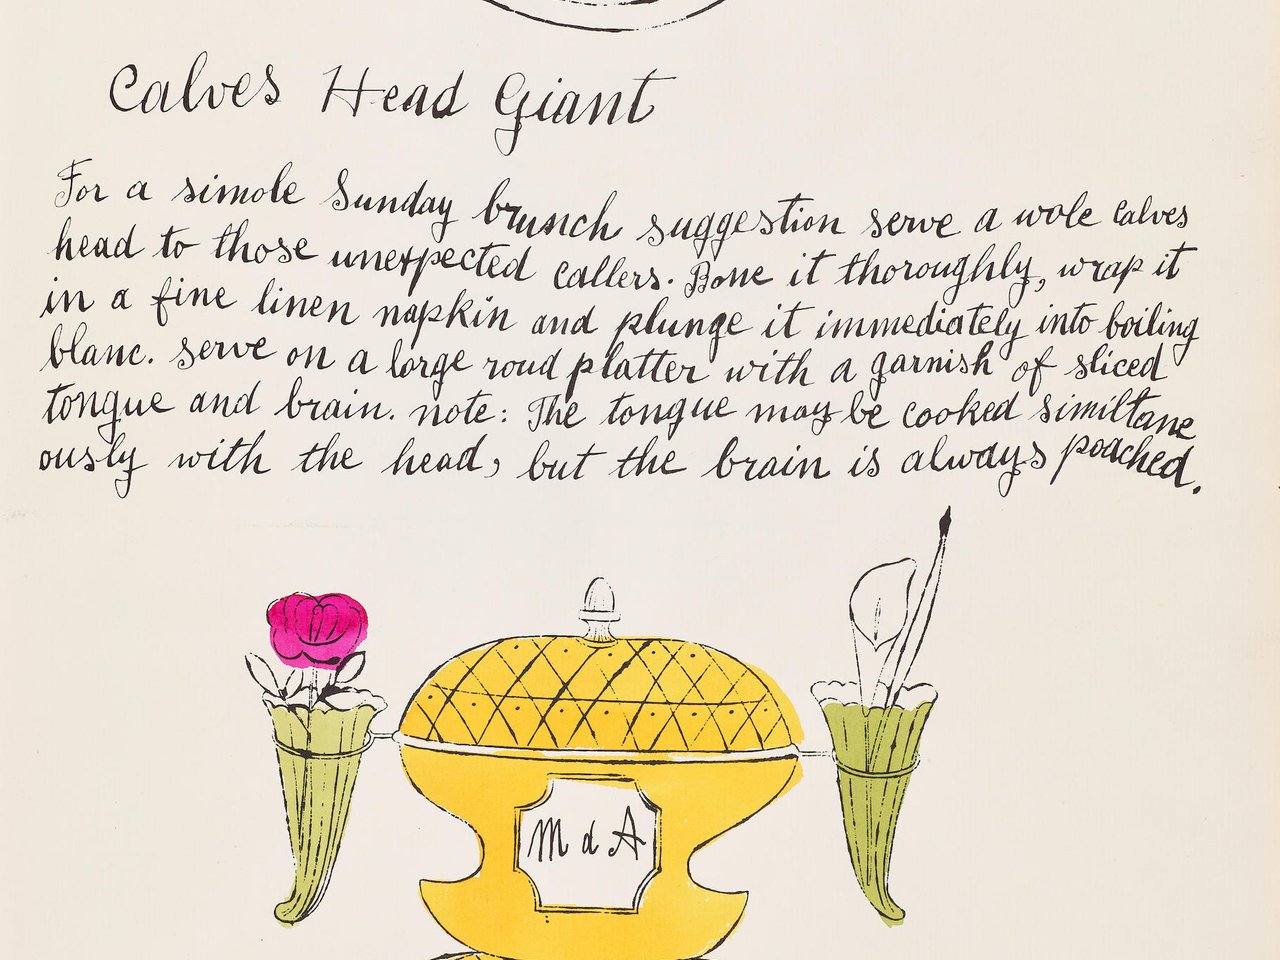 Calves Head Giant
For a simole Sunday brunch suggestion serve a wole Calves
head to those unexpected callers. Bone it thoroughly, wrap it
in a fine linen napkin and plunge it immediately into boiling
blanc. serve on a large roud platter with a garnish of sliced
tongue and brain. note: The tongue may be cooked similtane
ously with the head, but the brain is always poached.
M d A